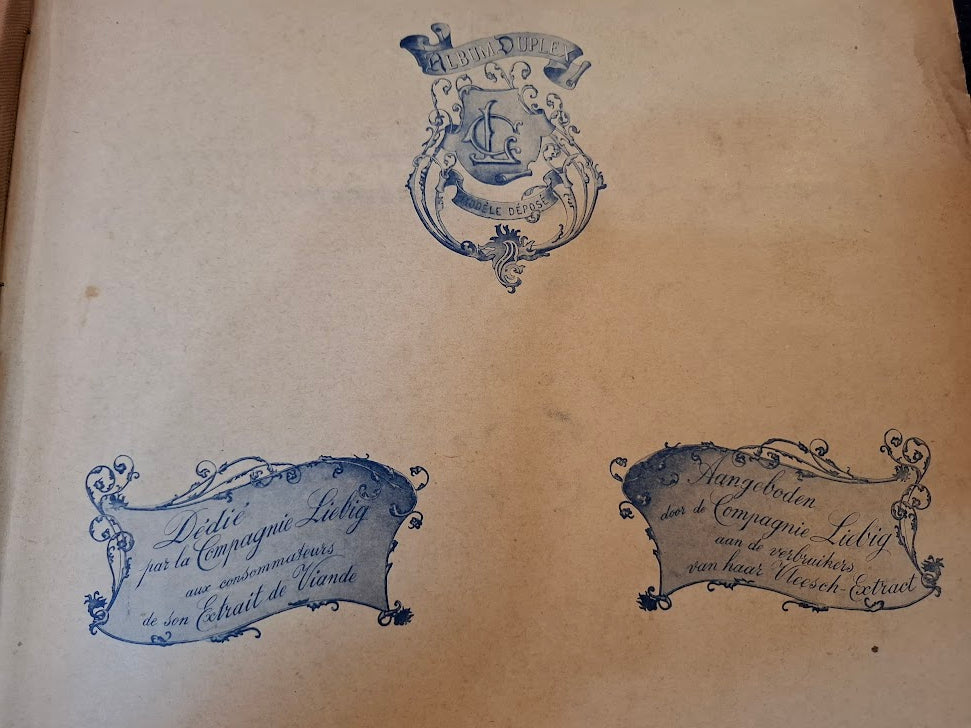 ALBUM DUPLEX
LC
MODÈLE DÉPOSÉ
Dédié
par la Compagnie Liebig
aux consommateurs
de son Extrait de Viande
Aangeboden
door de Compagnie Liebig
aan de verbruikers
van haar Vleesch-Extract